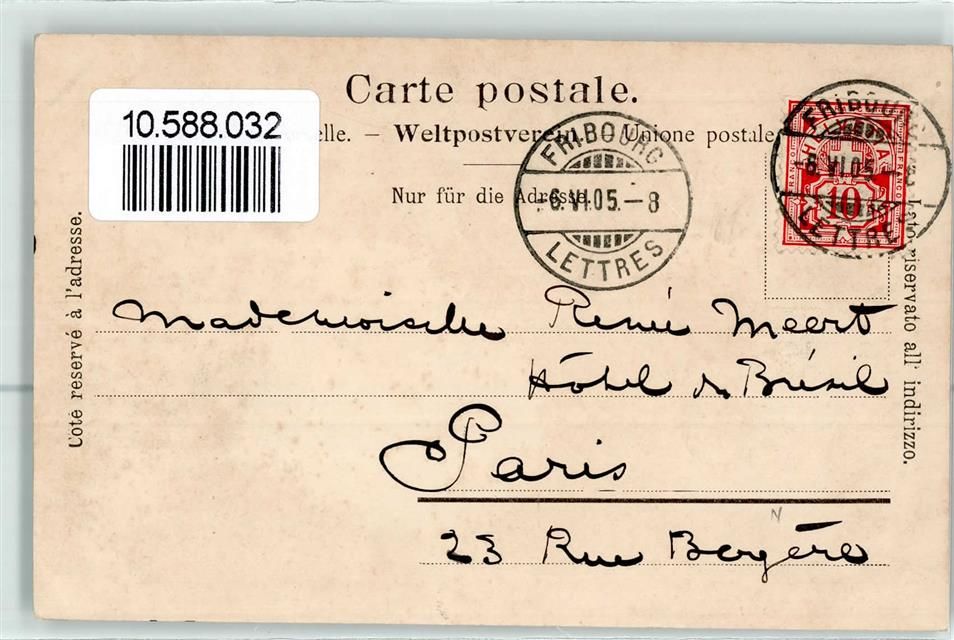 Carte postale.
10.588.032
elle. – Weltpostverein. Unione postale
Nur für die Adresse.
FRIBOURG
6.VI.05.–8
LETTRES
FRIBOURG
6.VI.05.–
LETTRES
HELVETIA
FRANCO
FRANCO
10
Côté reservé à l'adresse.
Lato riservato all' indirizzo.
Mademoiselle Renée Meert
Hôtel du Brésil
Paris
23 Rue Bergère